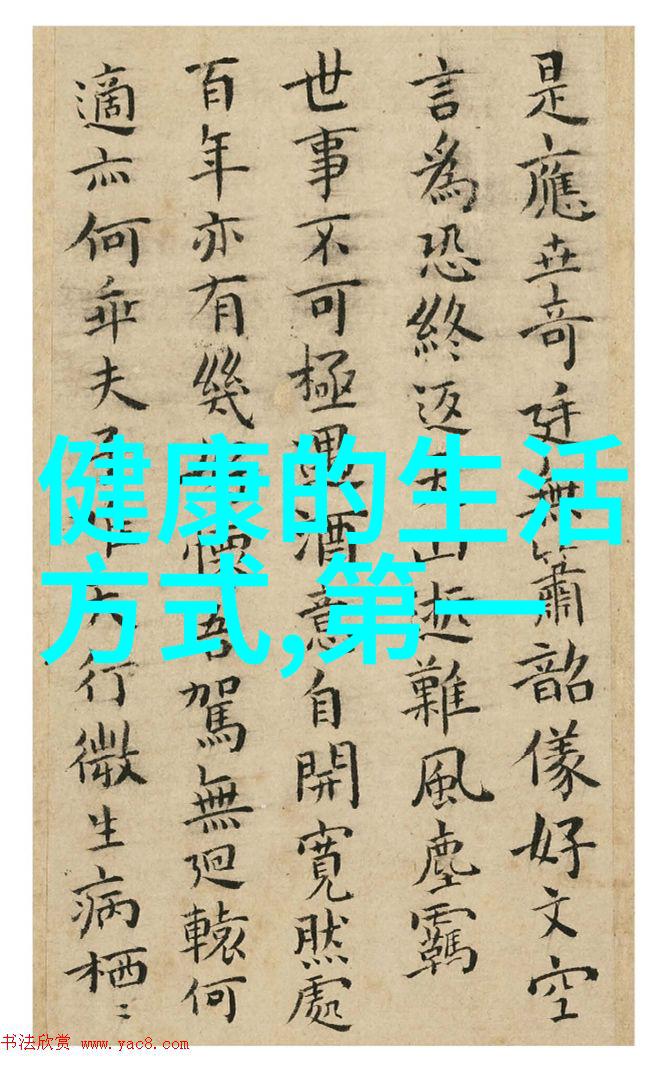 健康的生活
方式,第一
是應世奇廷無簫韶儀好文空
言為恐終返山難風塵羈
世事不可極酒意自開寬然處
百年亦有幾懷吾駕無迴轅何
適亦何乖夫行微生病栖〻
书法欣赏 www.yac8.com